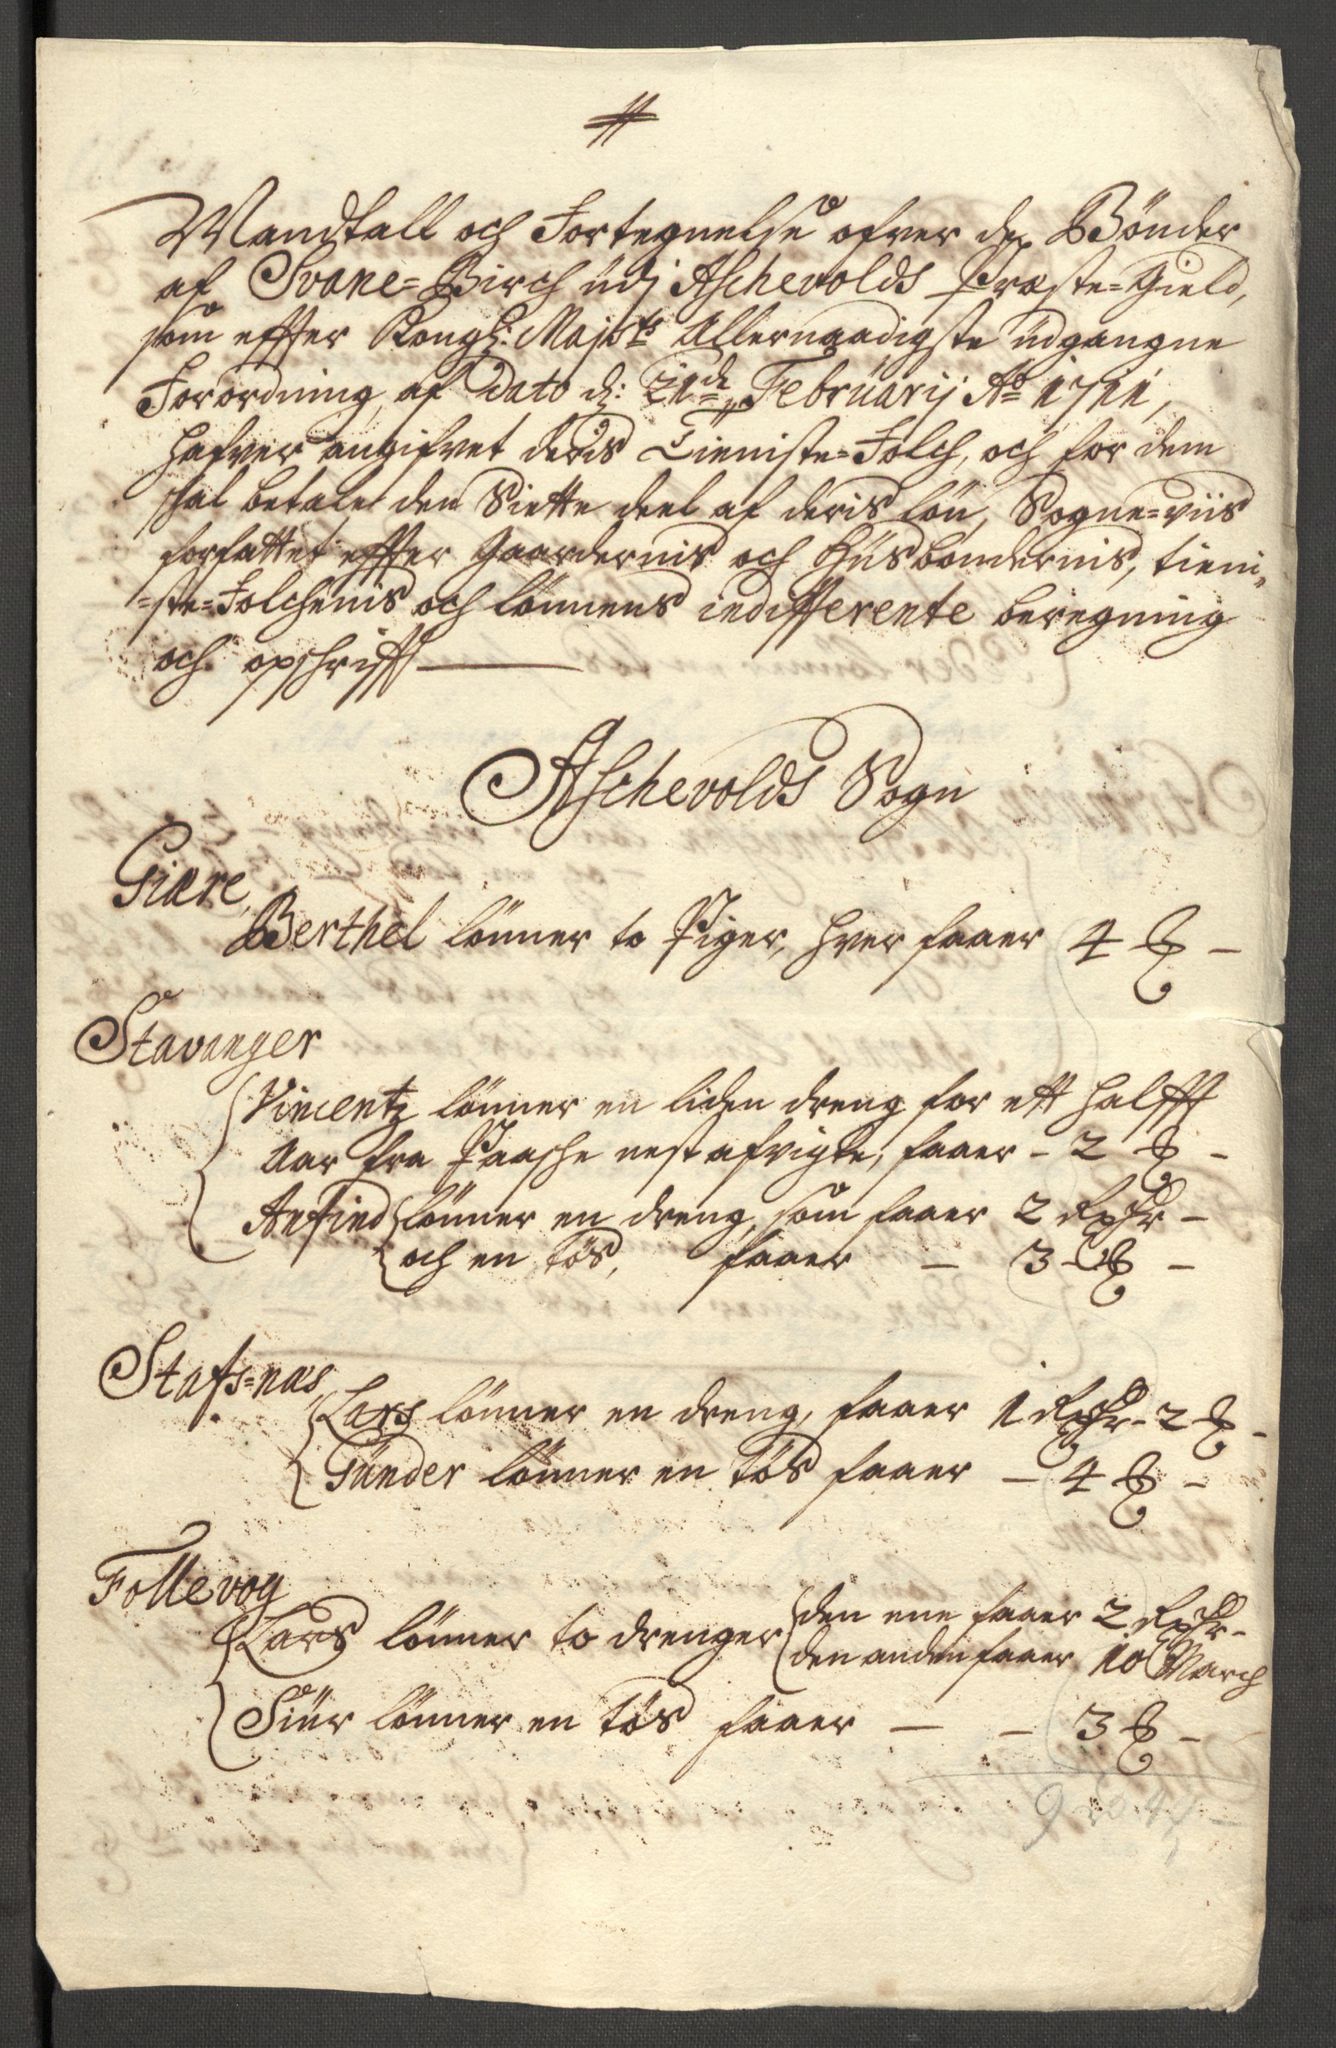 Mandtall och Fortegnelse ofver de Bönder
af Svane=Birch udj Aschevolds Præste=Gield,
som effter Kongl: Majsts Allernaadigste udgangne
Forordning, af Dato d: 21de Februarij Ao 1711,
hafver angifvet deris Tieniste=Folch, och for dem
schal betale den Siette deel af deris lön, Sogne=viis
forfattet effter Gaardernis och Husbondernis, tieni=
=ste=Folchenis och lönnens indifferente beregning
och opschrifft
Aschevolds Sogn
Giære,
Berthel lönner to Piger, hver faaer 4
Stavanger
Vincentz lönner en liden dreng for ett halfft
Aar fra Paasche nest afvigte, faaer - 2
Anfind lönner en dreng, som faaer 2 Rixdr -
och en Tös, faaer - 3 -
Stafs=næs
Lars lönner en dreng, faaer 1 Rixdr - 2
Gunder lönner en Tös faaer - 4 -
Follevog
Lars lönner to drenger den ene faaer 2 Rixdr -
den anden faaer 10 March
Siur lönner en Tös faaer - - 3 -